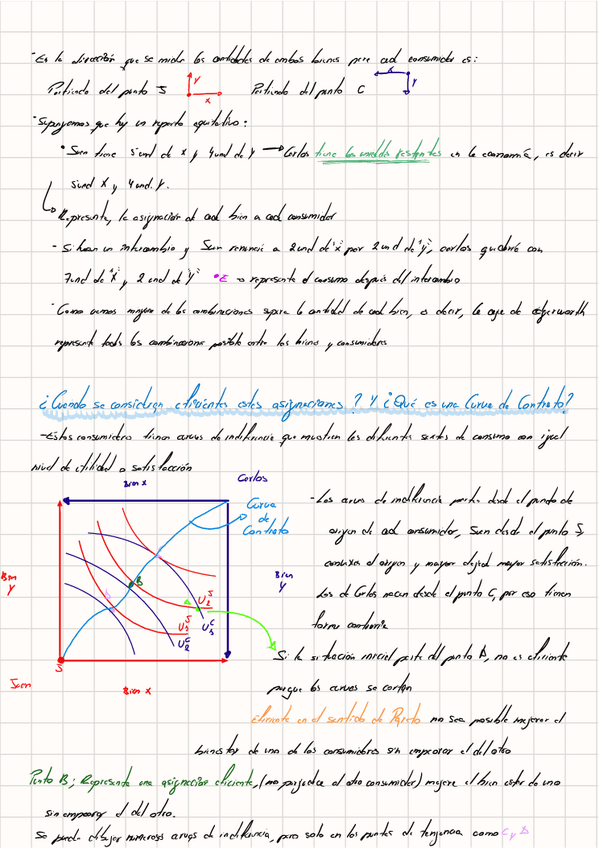 - En la dirección que se miden las cantidades de ambos bienes para cada consumidor es:
Partiendo del punto S y x Partiendo del punto C x y
- Supongamos que hay un reparto equitativo:
• Juan tiene 5 und de x y 4 und de y → Carlos tiene las unidades restantes en la economía, es decir
5 und X y 4 und. Y.
Representa, la asignación de cada bien a cada consumidor
- Si hacen un intercambio y Juan renuncia a 2 und de "x" por 2 und de "y", Carlos quedará con
7 und de "X" y 2 und de "Y" • E → representa el consumo después del intercambio
- Como vemos ninguna de las combinaciones supera la cantidad de cada bien, es decir, la caja de edgeworth
representa todas las combinaciones posibles entre los bienes y consumidores
¿Cuando se consideran eficientes estas asignaciones? Y ¿Qué es una Curva de Contrato?
- Estos consumidores tienen curvas de indiferencia que muestran las diferentes sextas de consumo con igual
nivel de utilidad o satisfacción
Bien X Carlos
Curva
de
Contrato
Bien
Y
Bien
Y
B
A
U₂ˢ
U₁ˢ
U₁ᶜ
U₂ᶜ
S
Juan
Bien X
- Las curvas de indiferencia parten desde el punto de
origen de cada consumidor, Juan desde el punto S,
convexas al origen y mayor mayor satisfacción.
Las de Carlos nacen desde el punto C, por eso tienen
forma
Si la situación inicial parte del punto A, no es eficiente
porque las curvas se cortan
Eficiente en el sentido de Pareto no sea posible mejorar el
bienestar de uno de los consumidores sin empeorar el del otro
Punto B; Representa una asignación eficiente, (no perjudica al otro consumidor) mejore el bien estar de uno
sin empeorar el del otro.
Se puede dibujar numerosas curvas de indiferencia, pero solo en los puntos de tangencia como C y D